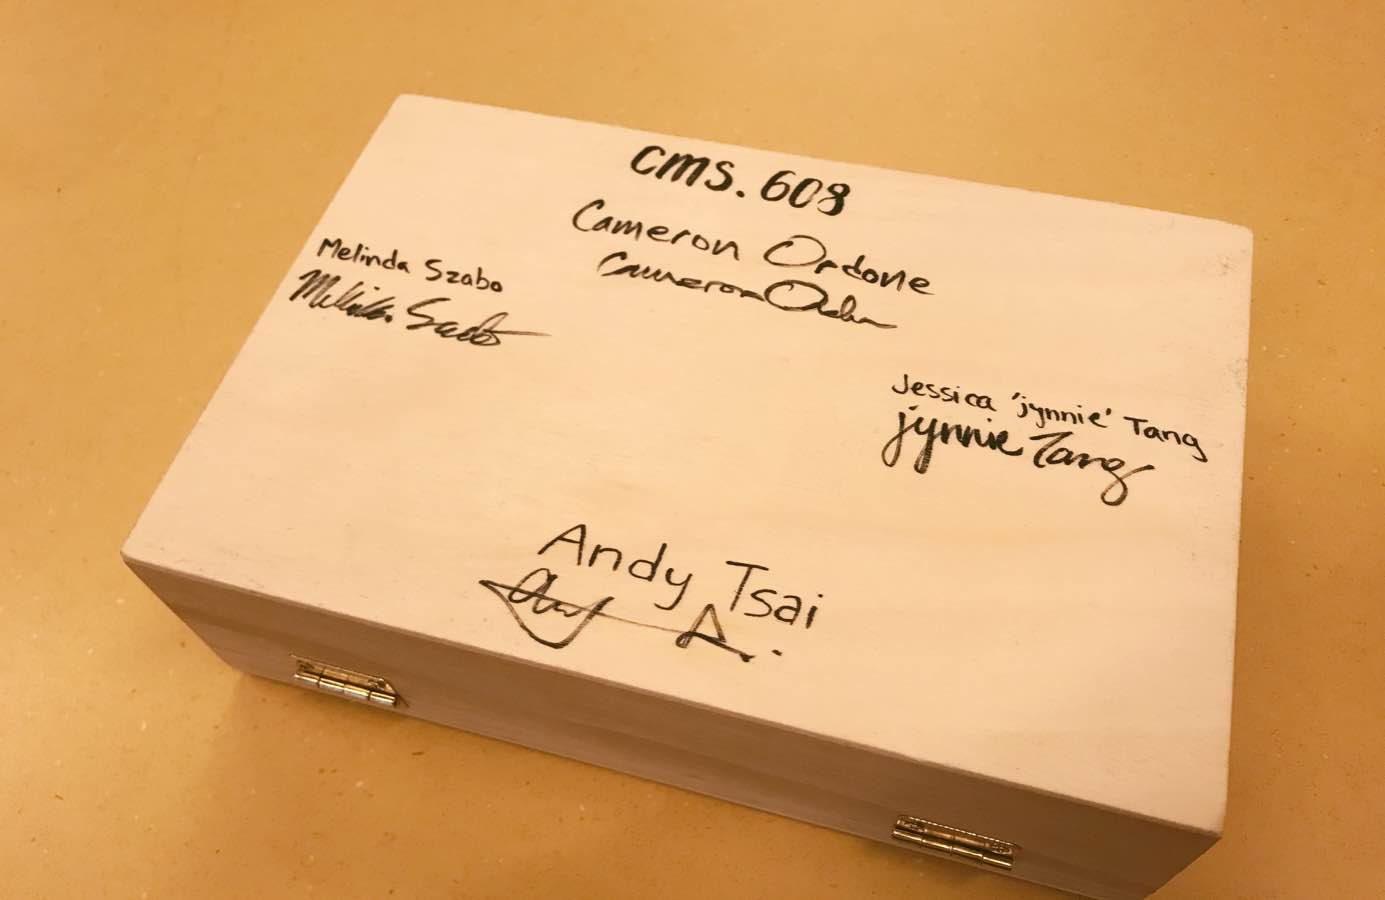 CMS.608
Cameron Ordone
Cameron
Melinda Szabo
Melinda Szabo
Jessica 'jynnie' Tang
jynnie Tang
Andy Tsai